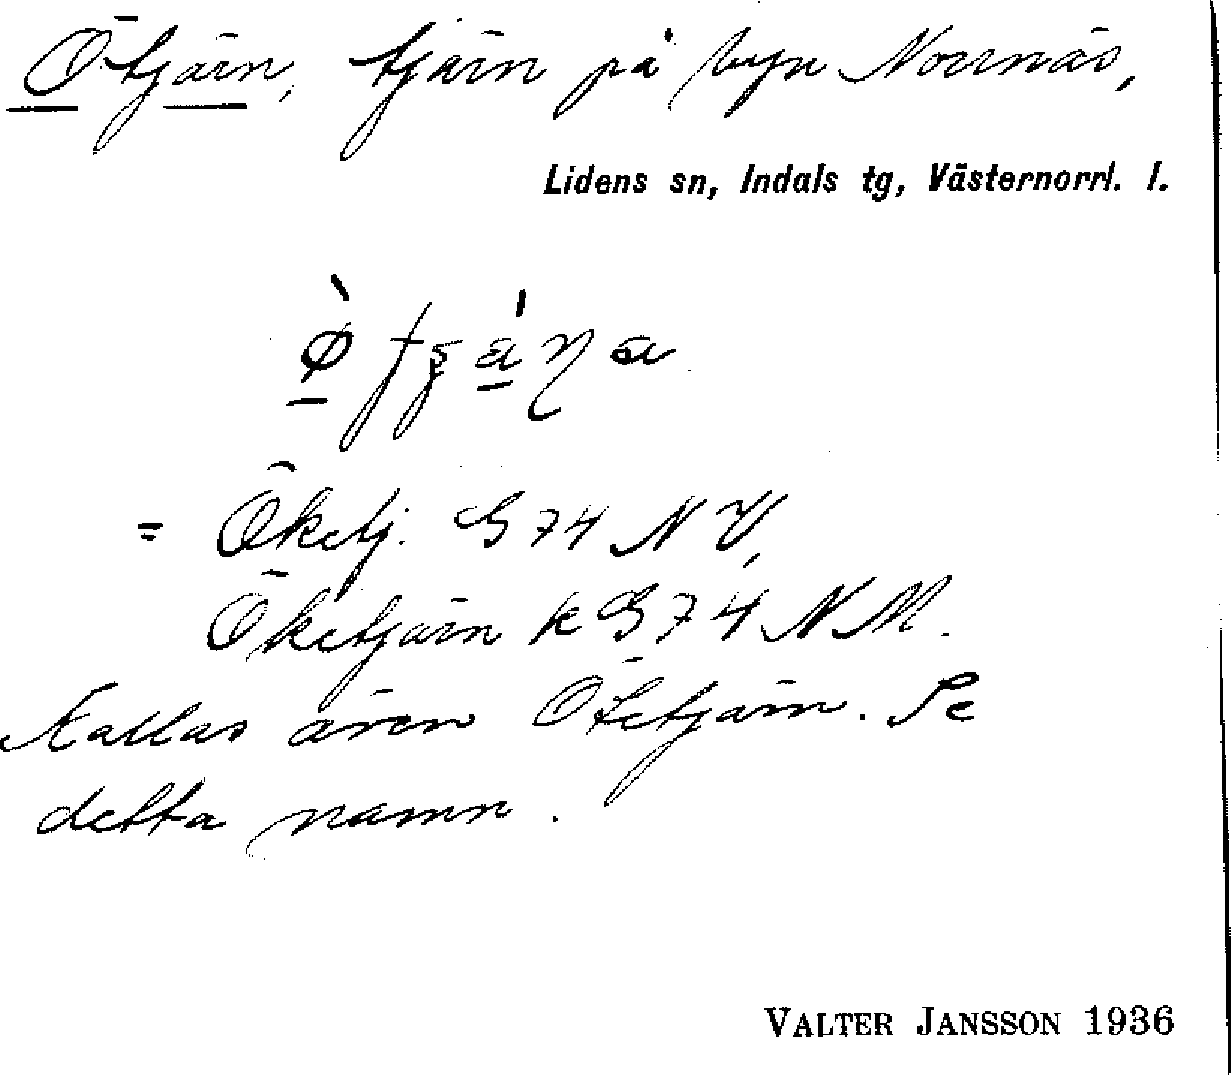 Ötjärn, tjärn på byn Norrnäs,
Lidens sn, Indals tg, Västernorrl. l.
= Öketj. G 74 NV,
Öketjärn k G 74 NM.
Kallas även Öketjärn. Se
detta namn.
VALTER JANSSON 1936